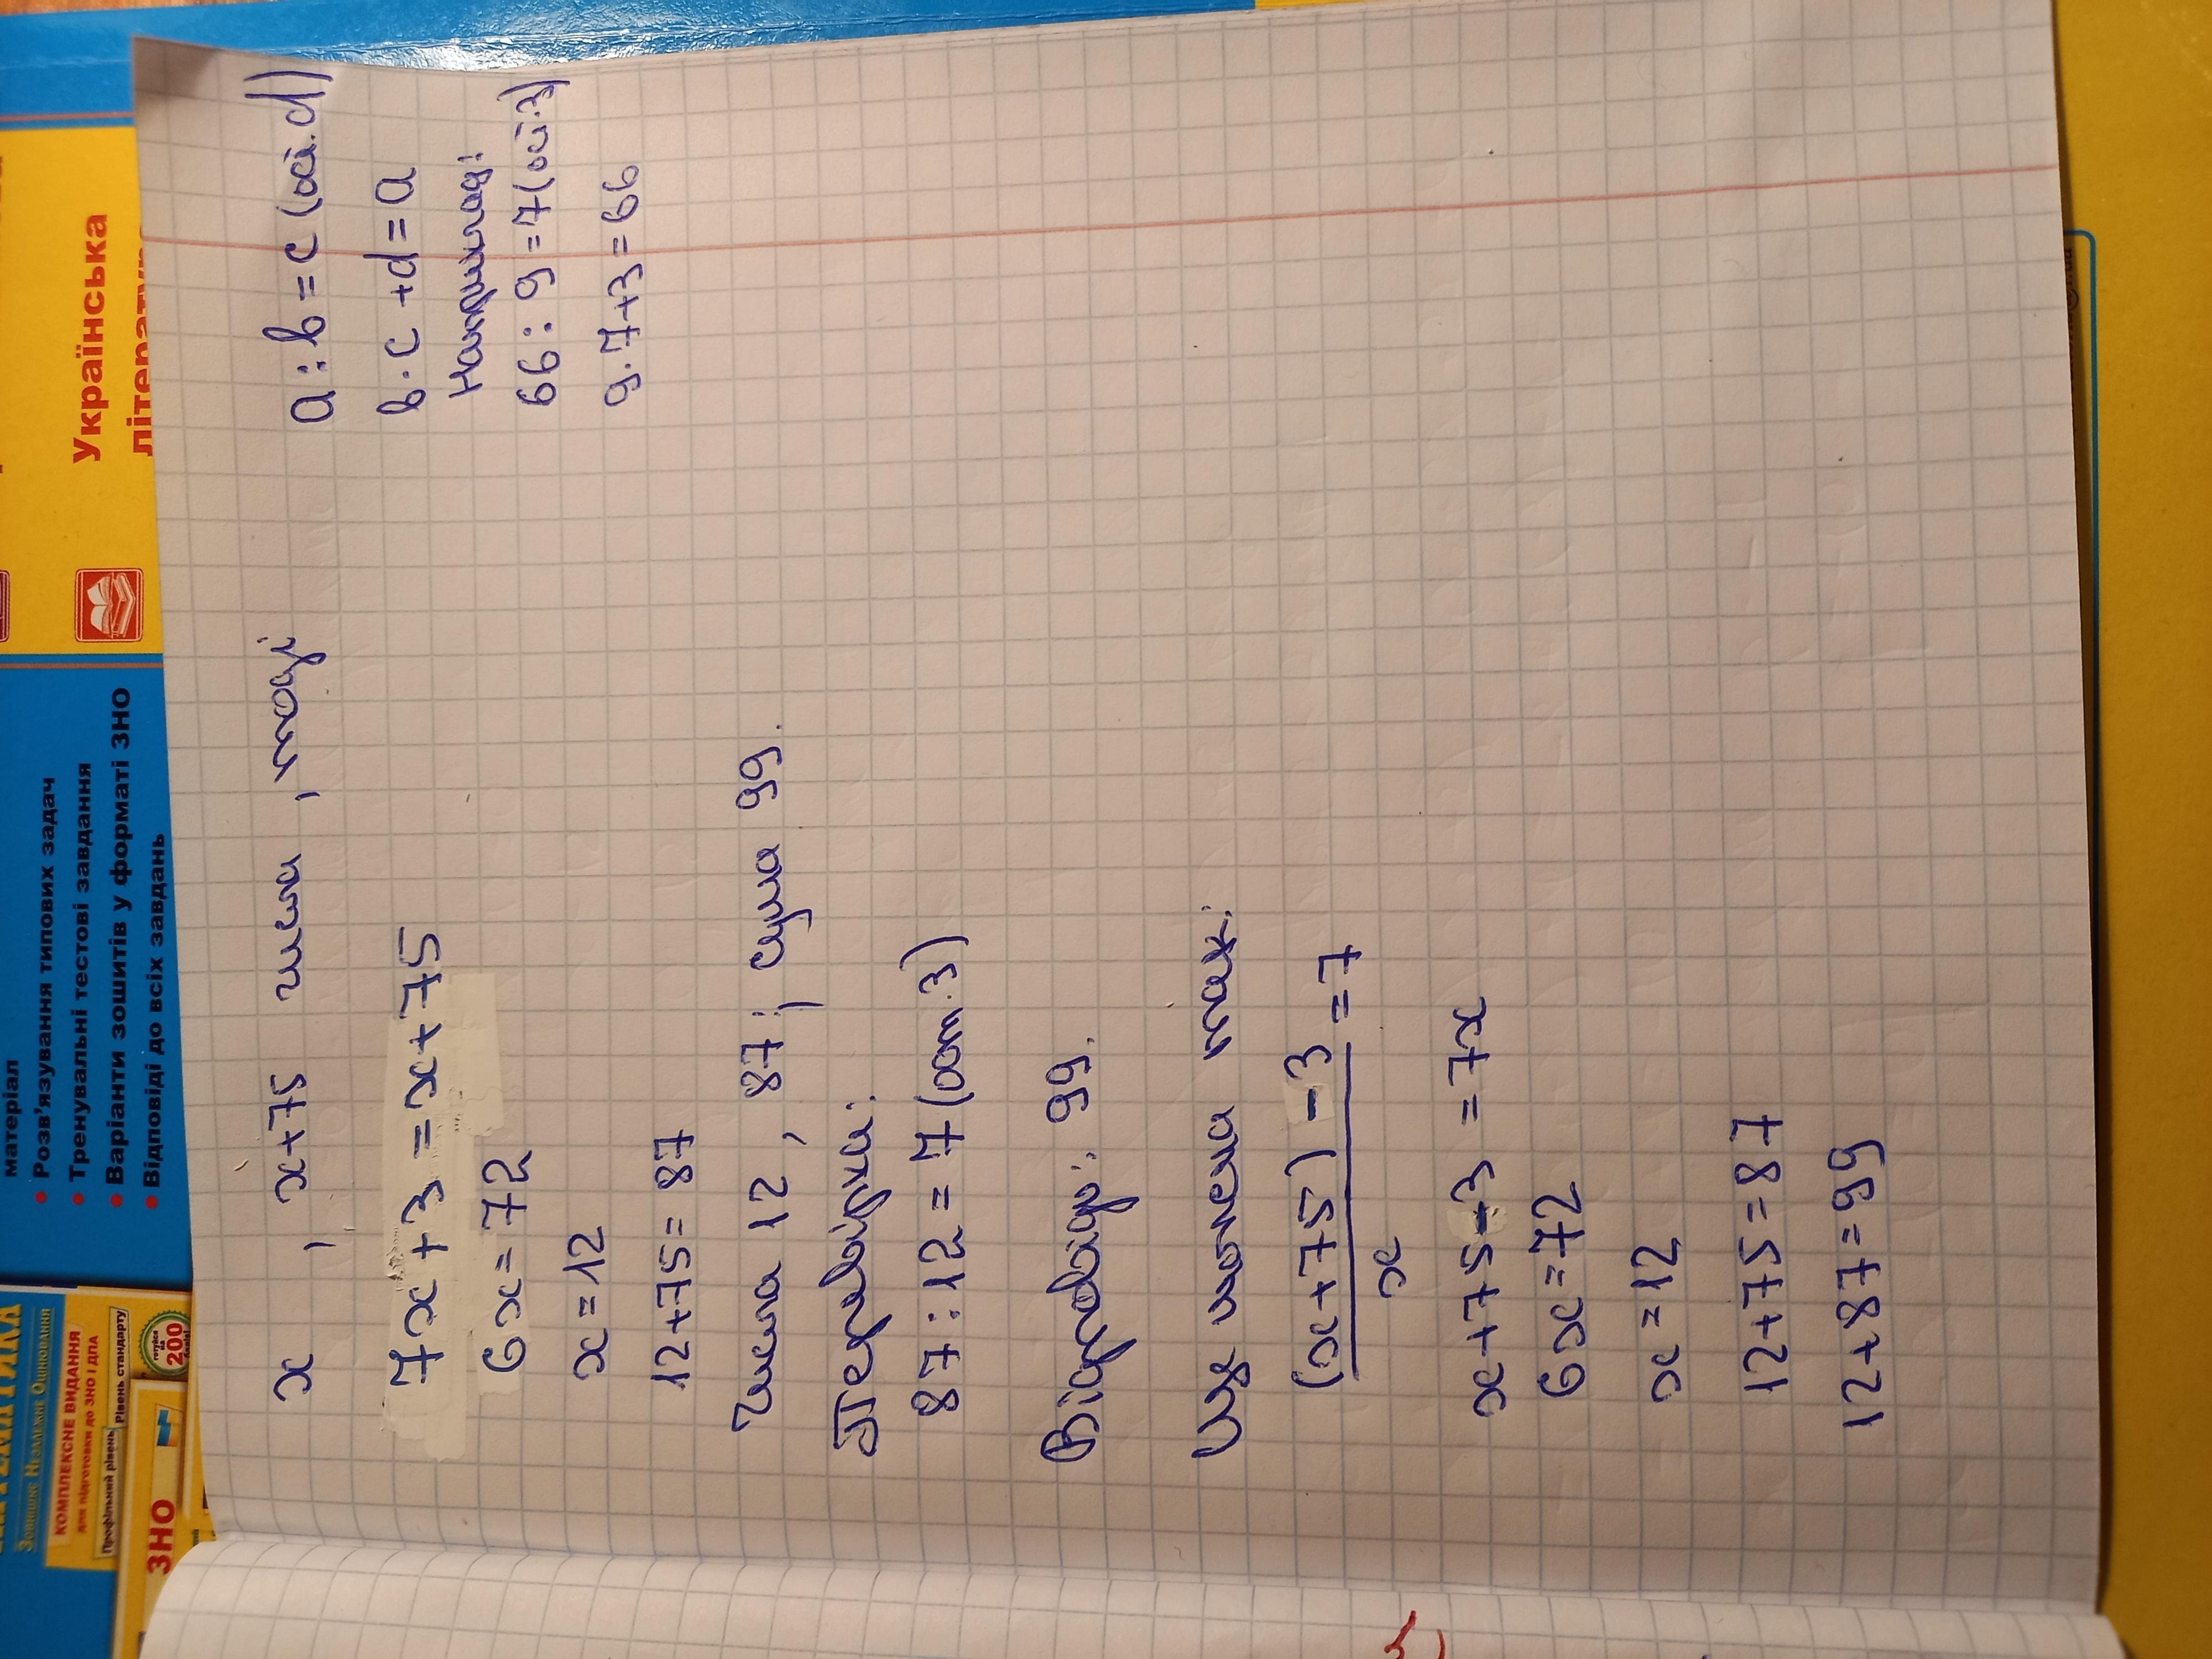 x , x+75 числа , тоді
7x+3=x+75
6x=72
x=12
12+75=87
Числа 12, 87; сума 99.
Перевірка:
87:12=7(ост.3)
Відповідь: 99.
Ще можна так:
(x+75)-3
x
=7
x+75-3=7x
6x=72
x=12
12+75=87
12+87=99
a:b=c(ост.d)
b·c+d=a
Наприклад:
66:9=7(ост.3)
9·7+3=66
Українська
література
матеріал
• Розв'язування типових задач
• Тренувальні тестові завдання
• Варіанти зошитів у форматі ЗНО
• Відповіді до всіх завдань
Зовнішнє Незалежне Оцінювання
КОМПЛЕКСНЕ ВИДАННЯ
для підготовки до ЗНО і ДПА
Профільний рівень
Рівень стандарту
200
ЗНО